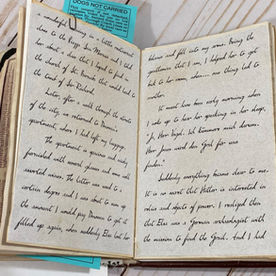 DOGS NOT CARRIED
a wonderful in a little restaurant
close to the Piazza San Marco and I told
her about a clue that I found in
the church of San Barnaba that would lead to
the tomb of Sir Richard.
Later, after a walk through the streets
of the city, we returned to Donovan's
apartment, where I had left my luggage.
The apartment is spacious and nicely
furnished with mixed glasses and some
assorted mixes. The letter was used to a
certain degree and I was about to sum up
the amount I would pay Donovan to get it
filled up again, when suddenly Elsa lost her
balance and fell into my arms. Being the
gentleman that I am, I helped her to get
back to her room, where... one thing led to
another.
It must have been early morning when
I woke up to her for speaking in her sleep,
"Ja, Herr Vogel. Ich kümmere mich darum.
Herr Jones wird den Gral für uns
finden."
Suddenly everything became clear to me.
It is no secret that Hitler is interested in
relics and objects of power. I realized then
that Elsa was a German archeologist with
the mission to find the Grail. And I had